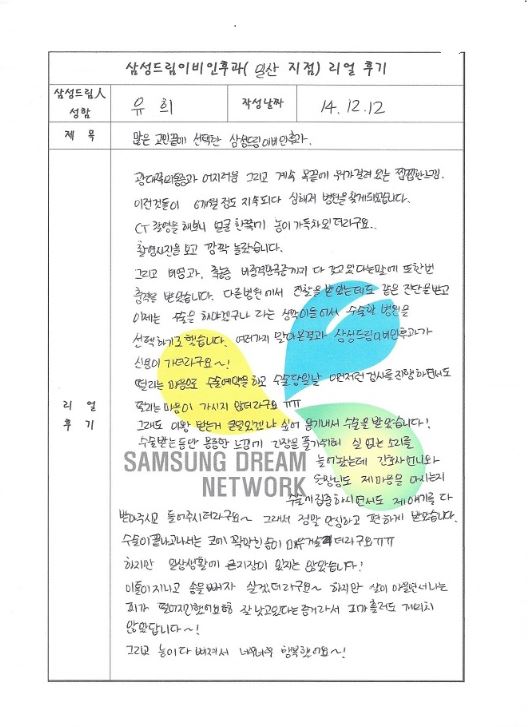 삼성드림이비인후과( 일산 지점) 리얼 후기
삼성드림人 성함
유 희
작성날짜
14. 12. 12
제 목
많은 고민끝에 선택한 삼성드림이비인후과.
리 얼 후 기
광대쪽의통증과 어지러움 그리고 계속 목끝에 뭐가걸려 있는 찝찝한느낌.
이런것들이 6개월 정도 지속되다 심해져 병원을 찾게되었습니다.
CT 촬영을 해보니 얼굴 한쪽이 농이 가득차있더라구요.
촬영사진을 보고 깜짝 놀랐습니다.
그리고 비염과, 축농증 비중격만곡증까지 다 갖고있다는말에 또한번
충격을 받았습니다. 다른병원에서 진찰을 받았는데도 같은 진단을받고
이제는 수술을 하야겠구나 라는 생각이들어서 수술할 병원을
선택하기로했습니다. 여러가지 알아본결과 삼성드림이비인후과가
신뢰가 가더라구요~!
떨리는 마음으로 수술예약을하고 수술당일날 이런저런 검사를 진행하면서도
떨리는마음이 가시지 않더라구요 ㅠㅠ
그래도 이왕 받는거 싶어 용기내서 수술을 받았습니다!
수술받는동안 몽롱한 느낌에 긴장을 풀기위해 실 없는 소리를
늘어놨는데 간호사언니와
원장님도 제마음을 아시는지
수술에집중하시면서도 제얘기를 다
받아주시고 들어주시더라구요~ 그래서 정말 안심하고 편하게 받았습니다.
수술이끝나고나서는 코에 꽉막힌솜이 더라구요ㅠㅠ
하지만 일상생활에 큰지장이 있지는 않았습니다!
이틀이지나고 솜을빼자 살겠더라구요~ 하지만 살이 아물면서나는
피가 떨어지긴했어요 잘 낫고있다는 증거라서 피가흘러도 개의치
않았답니다~!
그리고 농이다 빠져서 너무너무 행복했어요~!
SAMSUNG DREAM
NETWORK